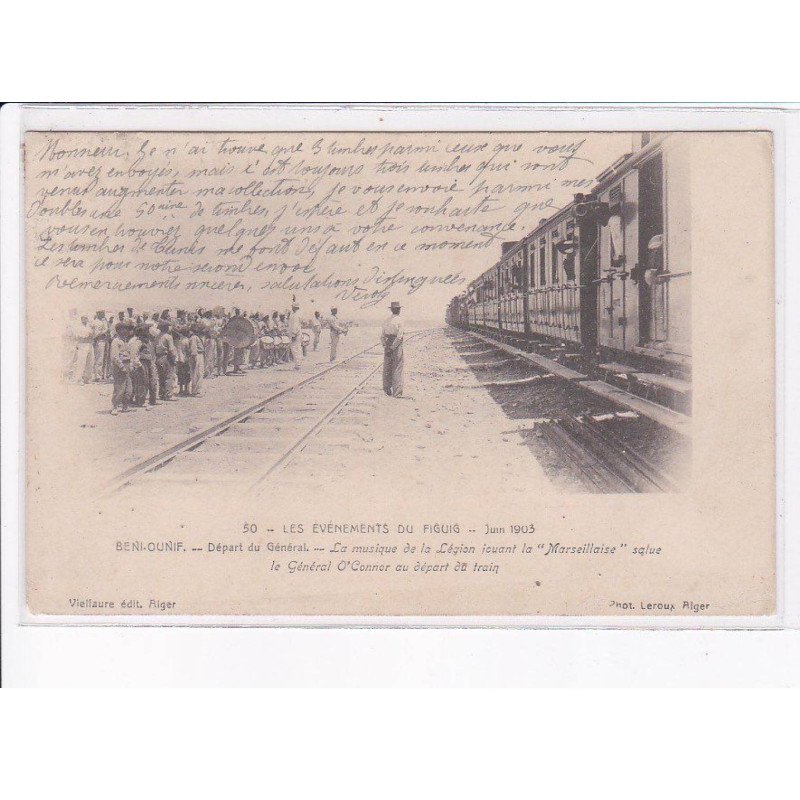 Monsieur, Je n'ai trouvé que 3 timbres parmi ceux que vous
m'avez envoyés, mais c'est toujours trois timbres qui sont
venus augmenter ma collection, je vous envoie parmi mes
doubles une 50aine de timbres, j'espère et je souhaite que
vous en trouviez quelques uns à votre convenance.
Les timbres de Tunis me font défaut en ce moment
ce sera pour notre second envoi
Remerciements sincères, salutations distinguées
50 -- LES EVENEMENTS DU FIGUIG -- Juin 1903
BENI-OUNIF. -- Départ du Général. -- La musique de la Légion jouant la "Marseillaise" salue
le Général O'Connor au départ du train
Viellaure édit. Alger
Phot. Leroux Alger